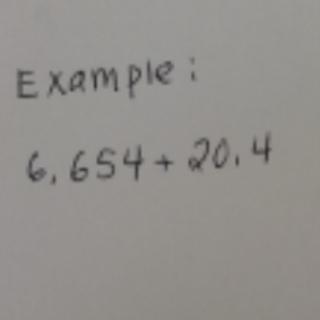 Example:
6.654 + 20.4